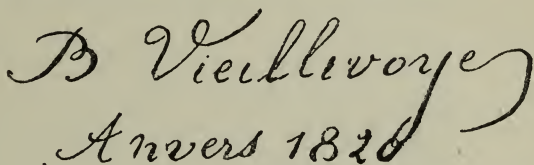 B Vieillevoye
Anvers 1828